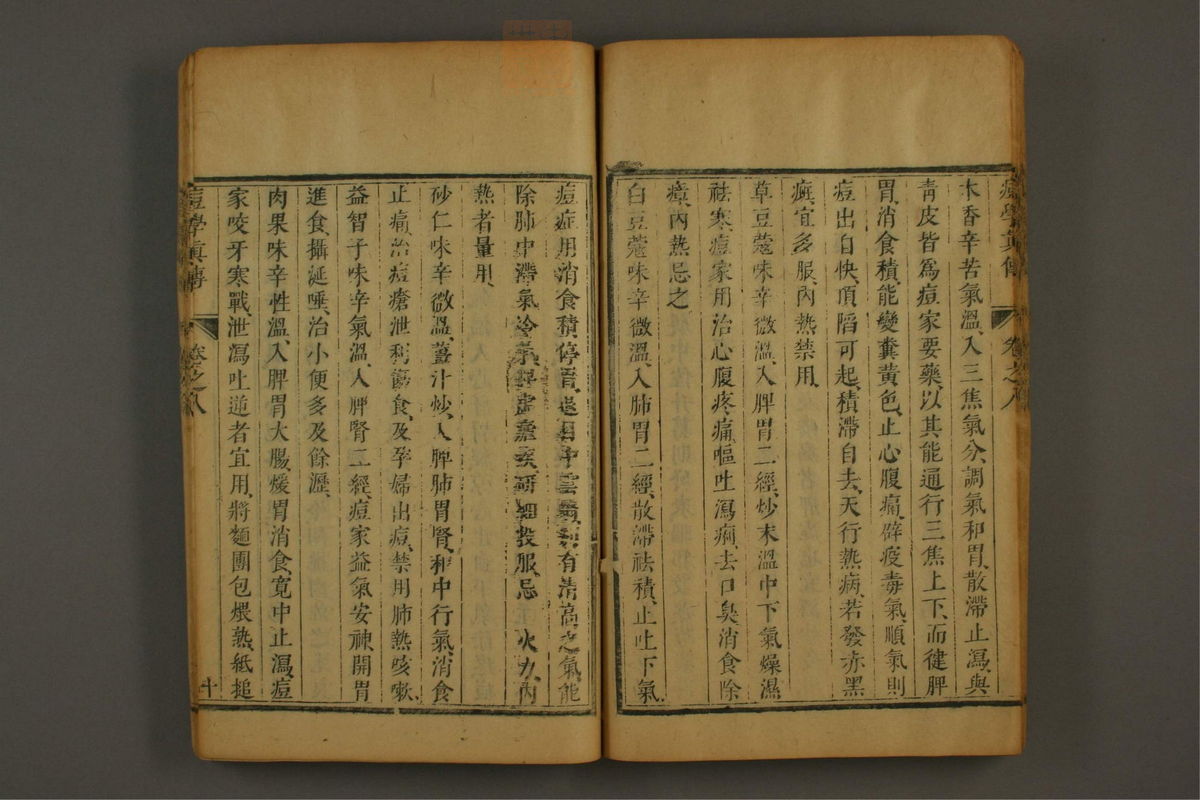 痘學真傳 卷之八
木香辛苦氣溫、入三焦氣分、調氣和胃、散滯止瀉、與
青皮皆爲痘家要藥、以其能通行三焦上下、而健脾
胃、消食積、能變糞黃色、止心腹痛、辟疫毒氣、順氣則
痘出自快、頂陷可起、積滯自去、天行熱病、若發赤黑
癍、宜多服、內熱禁用、
草豆蔻味辛微溫、入脾胃二經、炒末溫中下氣燥濕
祛寒、痘家用治心腹疼痛、嘔吐瀉痢、去口臭消食除
瘴、內熱忌之、
白豆蔻味辛微溫、入肺胃二經、散滯祛積、止吐下氣、
痘症用消食積停胃、退目中雲翳、別有清高之氣、能
除肺中滯氣冷氣、研細投服、忌火力、內
熱者量用、
砂仁味辛微溫、薑汁炒、入脾肺胃腎、和中行氣、消食
止痛、治痘瘡泄利傷食、及孕婦出痘、禁用肺熱咳嗽、
益智子味辛氣溫、入脾腎二經、痘家益氣安神、開胃
進食、攝涎唾、治小便多及餘瀝、
肉果味辛性溫、入脾胃大腸、煖胃消食、寬中止瀉、痘
家咬牙寒戰、泄瀉吐逆者宜用、將麵團包煨熟、紙搥
痘學真傳 卷之八 十